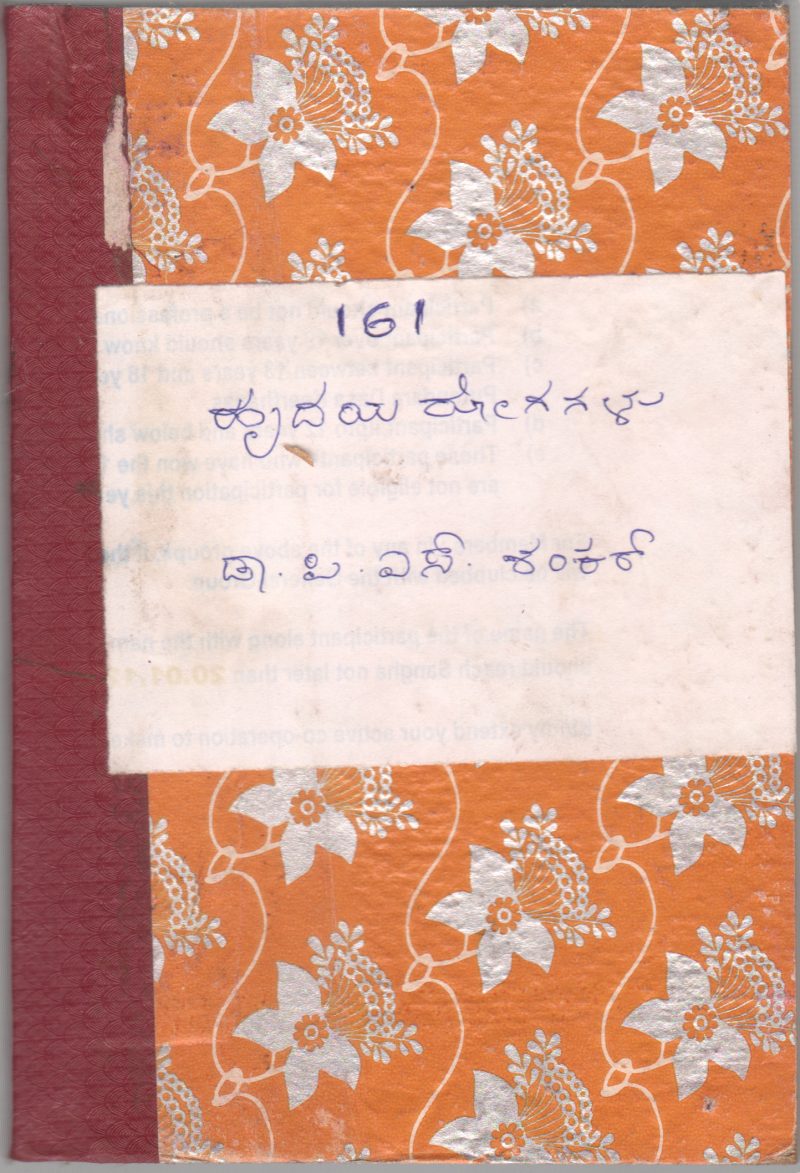 161
ಹೃದಯ ರೋಗಗಳು
ಡಾ. ಪಿ. ಎಸ್. ಶಂಕರ್